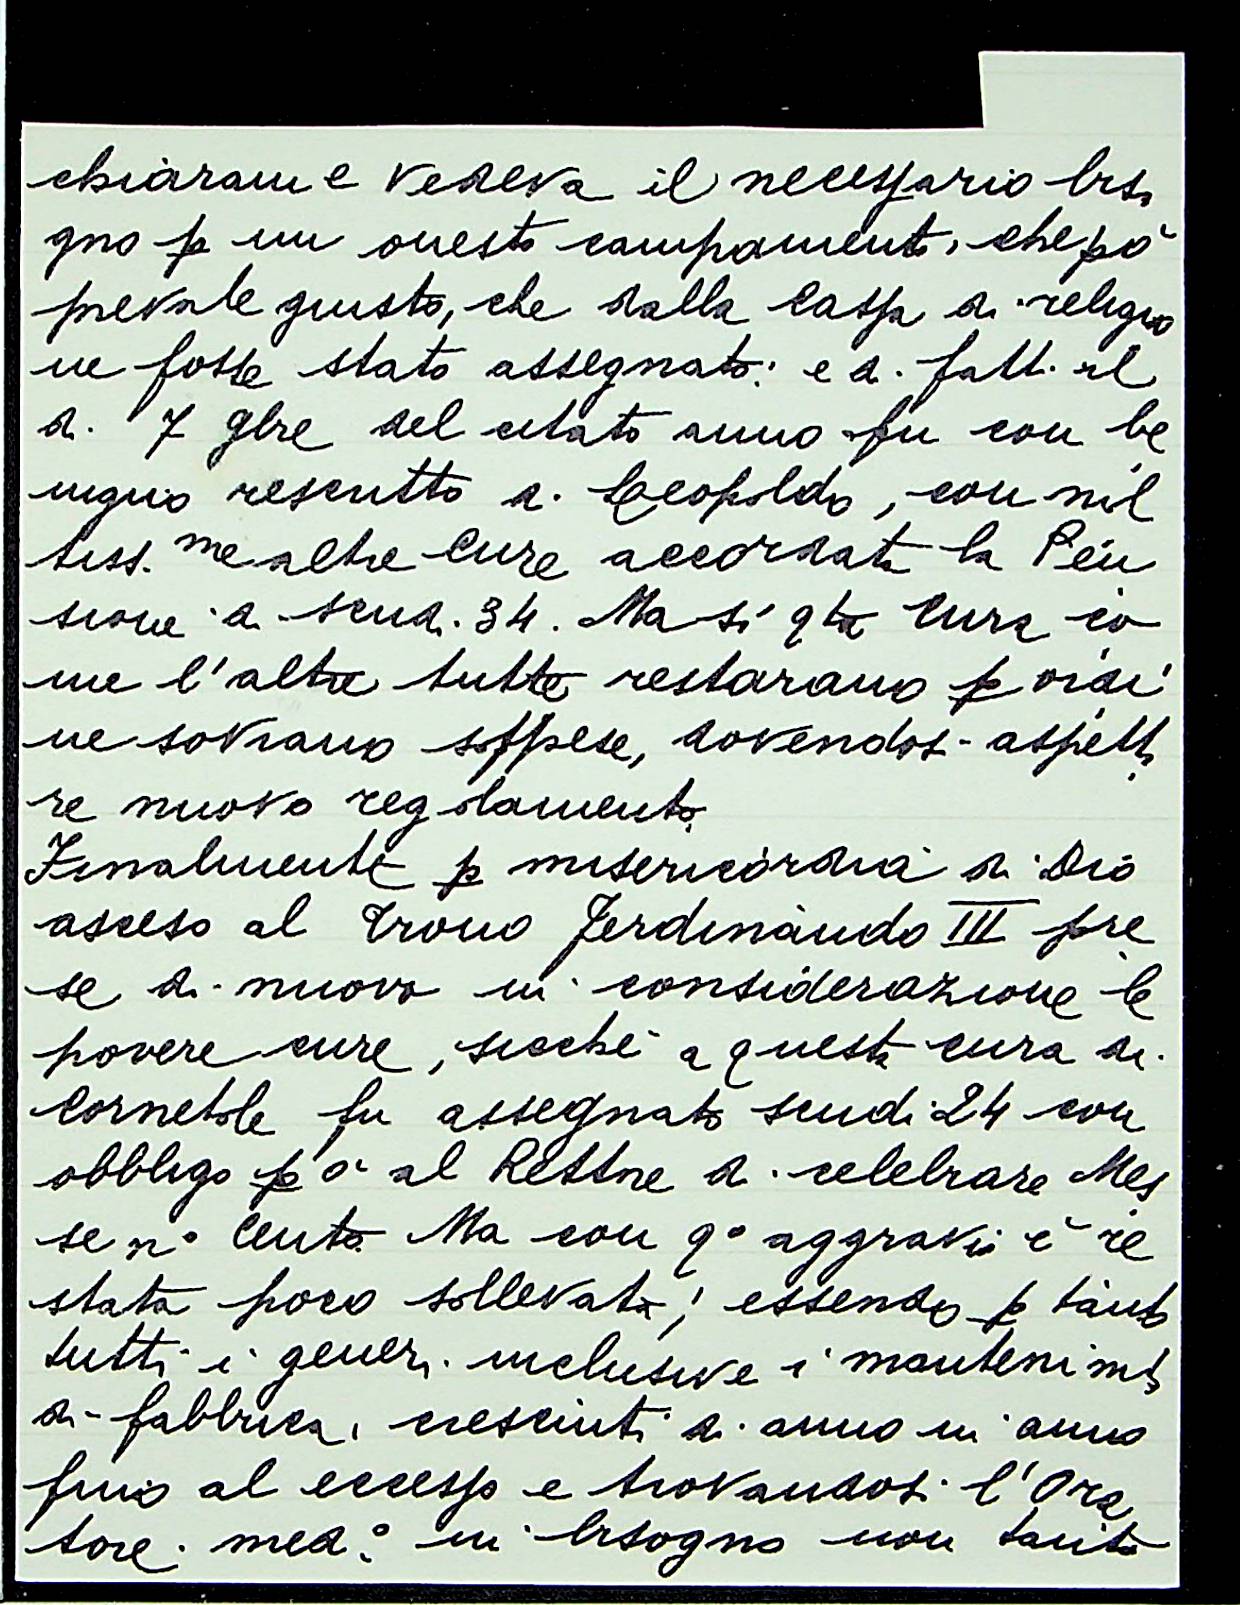 chiaram e vedeva il necessario biso
gno p un onesto campamento, che pò
prevale giusto, che dalla Cassa di religio
ne fosse stato assegnato: e di fatti il
di 7 gbre del citato anno fu con be
nigno rescritto di Leopoldo, con
altre Cure accordata la Pen
sione di scudi 34. Ma sí qta Cura co
me l'altre tutte restarano p ordi
ne sovrano sospese, dovendosi aspetta
re nuovo regolamento.
Finalmente p misericordia di Dio
asceso al Trono Ferdinando III pre
se di nuovo in considerazione le
povere cure, sicché a questa cura di
Cornetole fu assegnato scudi 24 con
obbligo pò al Rettore di celebrare Mes
se n° Cento. Ma con q° aggravio è re
stata poco sollevata; essendo p tanto
tutti i generi inclusive i mantenimti
di fabbrica, cresciuti di anno in anno
fino al eccesso e trovandosi l'Ora
tore med:° in bisogno non tanto